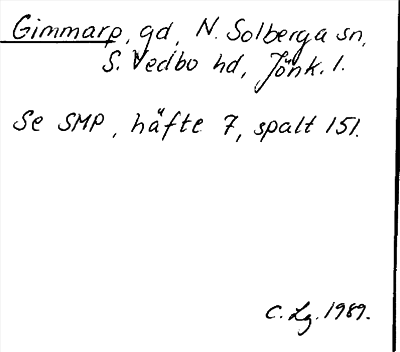 Gimmarp, gd, N. Solberga sn,
S. Vedbo hd, Jönk. l.
Se SMP, häfte 7, spalt 151.
C. Lg. 1989.